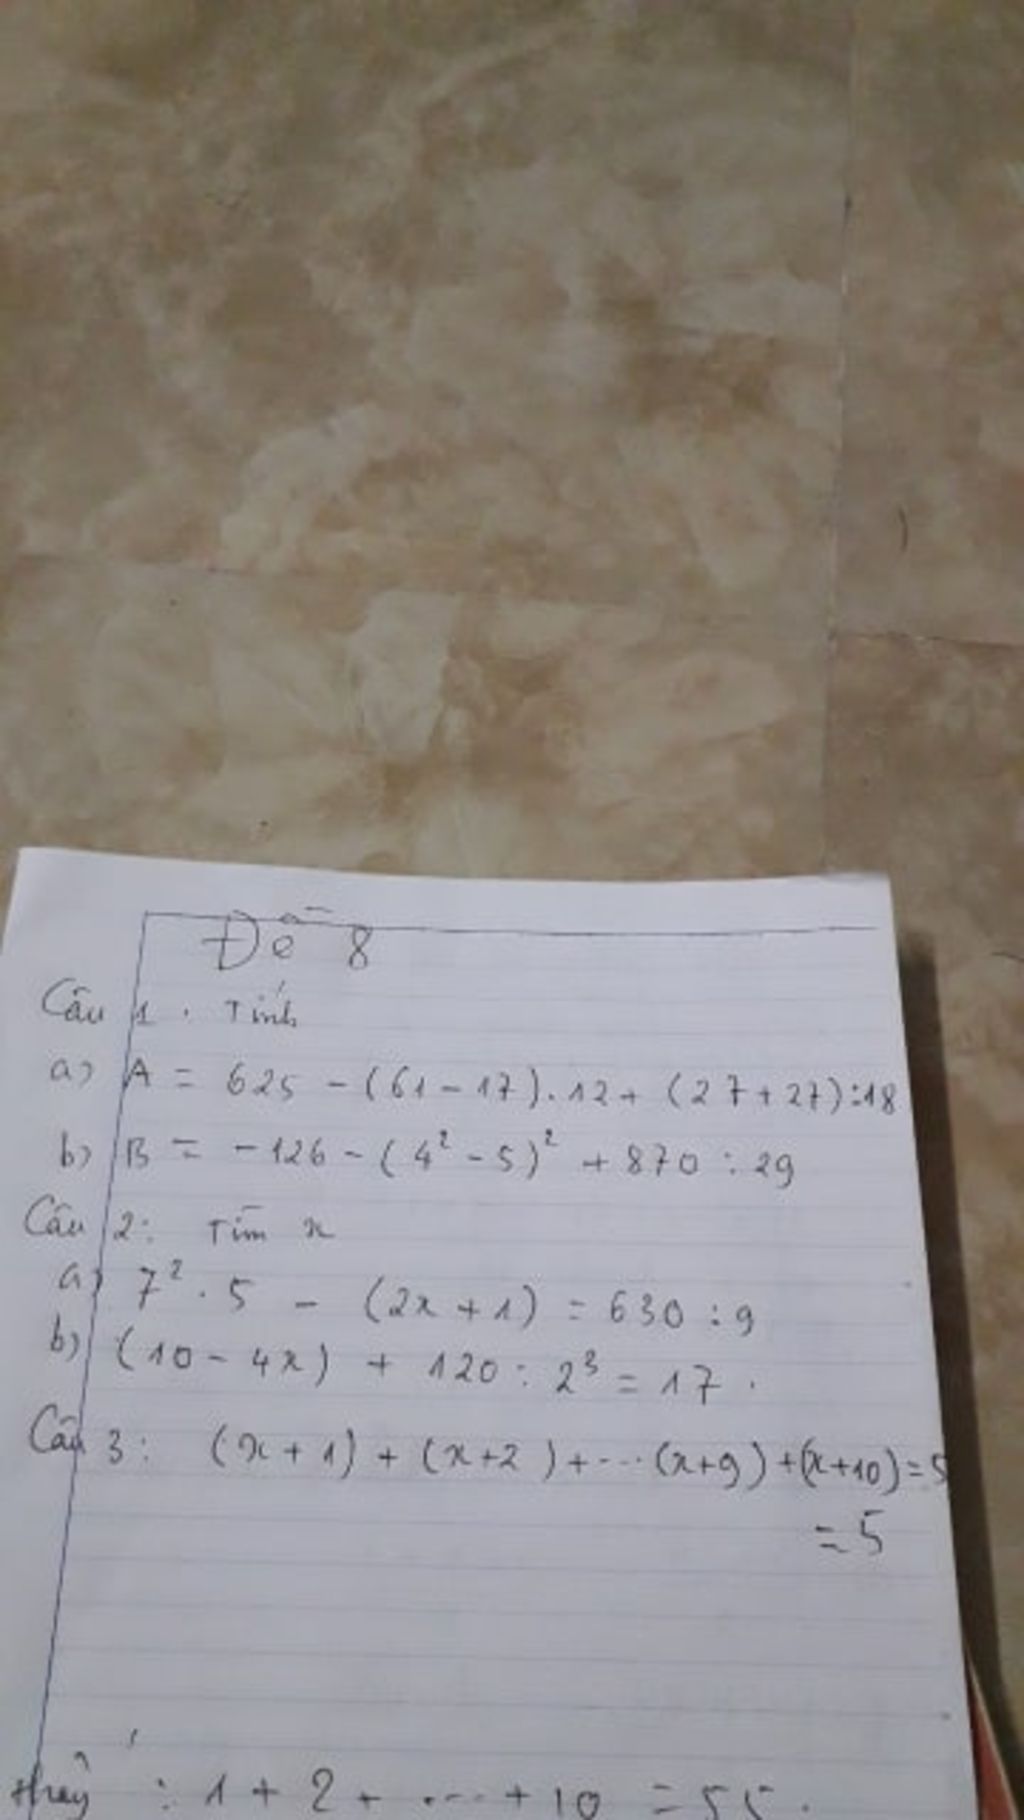 Đề 8
Câu 1. Tính
a) A = 625 - (61 - 17). 12 + (27 + 27) : 18
b) B = - 126 - (4² - 5)² + 870 : 29
Câu 2: Tìm x
a) 7² . 5 - (2x + 1) = 630 : 9
b) (10 - 4x) + 120 : 2³ = 17 .
Câu 3: (x + 1) + (x+2) + ... (x+9) + (x+10) = 5
= 5
thấy : 1 + 2 + .... + 10 = 55.